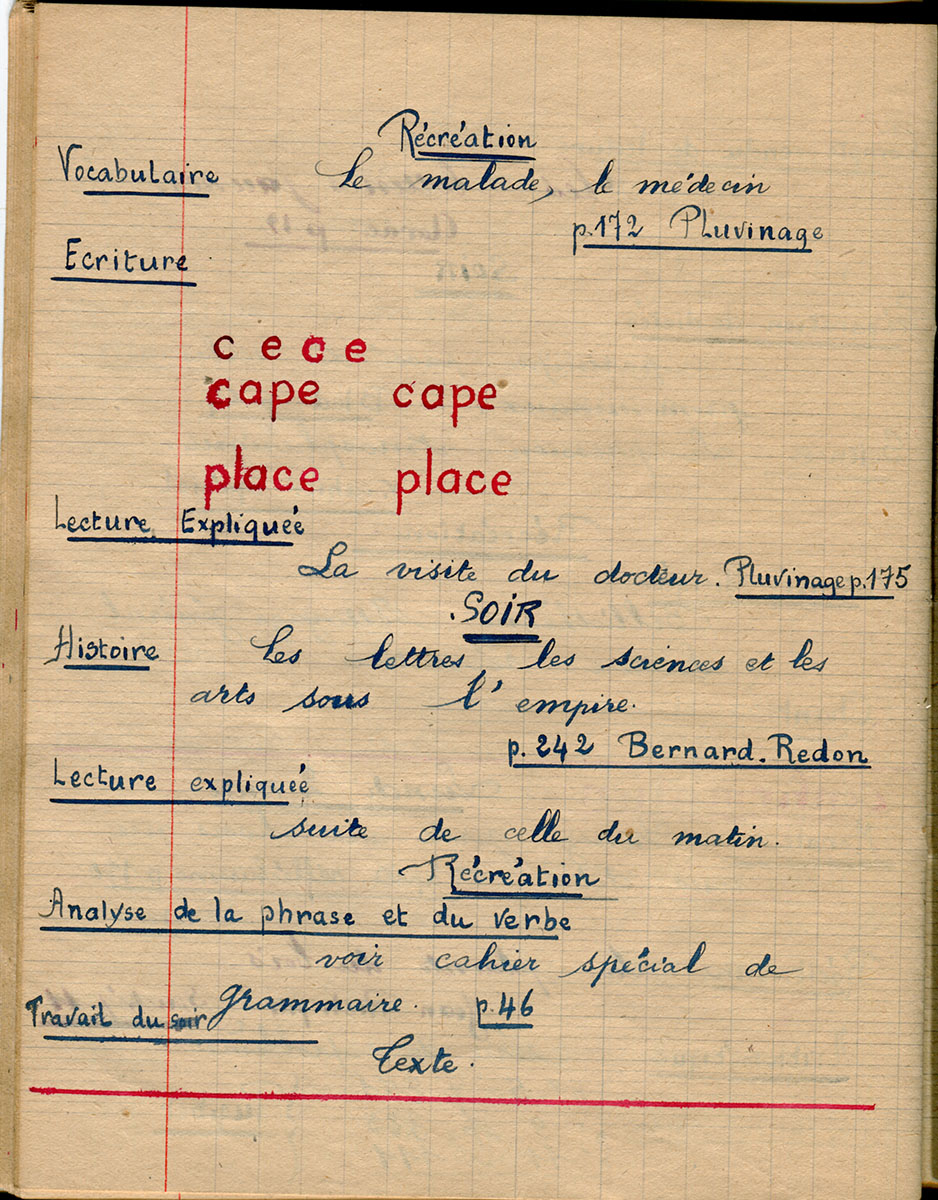 Récréation
Vocabulaire Le malade, le médecin
p.172 Pluvinage
Ecriture
c e c e
cape cape
place place
Lecture Expliquée
La visite du docteur. Pluvinage p.175
.SOIR
Histoire Les lettres, les sciences et les
arts sous l'empire.
p. 242 Bernard.Redon
Lecture expliquée
suite de celle du matin.
Récréation
Analyse de la phrase et du verbe
voir cahier spécial de
grammaire. p.46
Travail du soir
Texte.